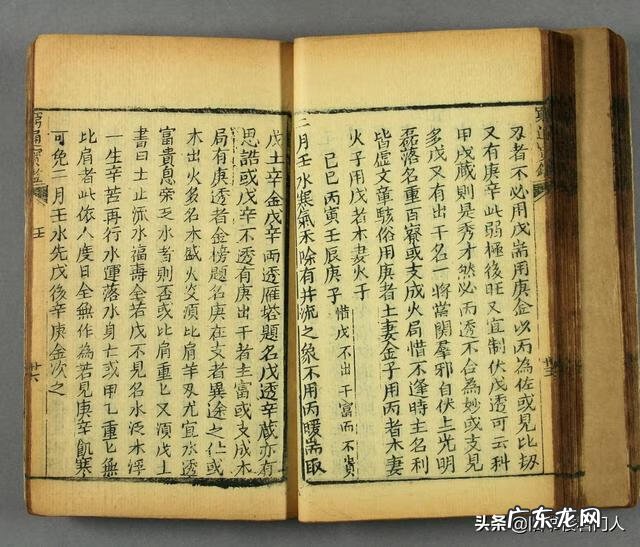 刃者不必用戊耑用庚金以丙為佐或見比刼
又有庚辛此弱極後旺又宜制伏戊透可云科
甲戊藏則是秀才然必丙透不合為妙或支見
多戊又有出干名一將當關羣邪自伏主光明
磊落名重百寮或支成火局惜不逢時主名利
皆虛文章駭俗用庚者土妻金子用丙者木妻
火子用戊者木妻火子
己巳丙寅壬辰庚子 惜戊不出干富而不貴
二月壬水寒氣未除有井流之象不用丙暖耑取
戊土辛金戊辛兩透雁塔題名戊透辛藏亦有
思誥或戊辛不透有庚出干者主富或支成木
局有庚透者金榜題名庚在支者異途之仕或
木出火多名木盛火炎須比肩羊刃尤宜水透
富貴恩榮乏水者則否或比肩重匕又須戊土
書曰土止流水福壽全若戊不見名水泛木浮
一生辛苦再行水運落水身亡或甲乙重匕無
比肩者此依人度日全無作為若見庚辛飢寒
可免二月壬水先戊後辛庚金次之
窮通寶鑑
壬
廿六
头条
广东龙网